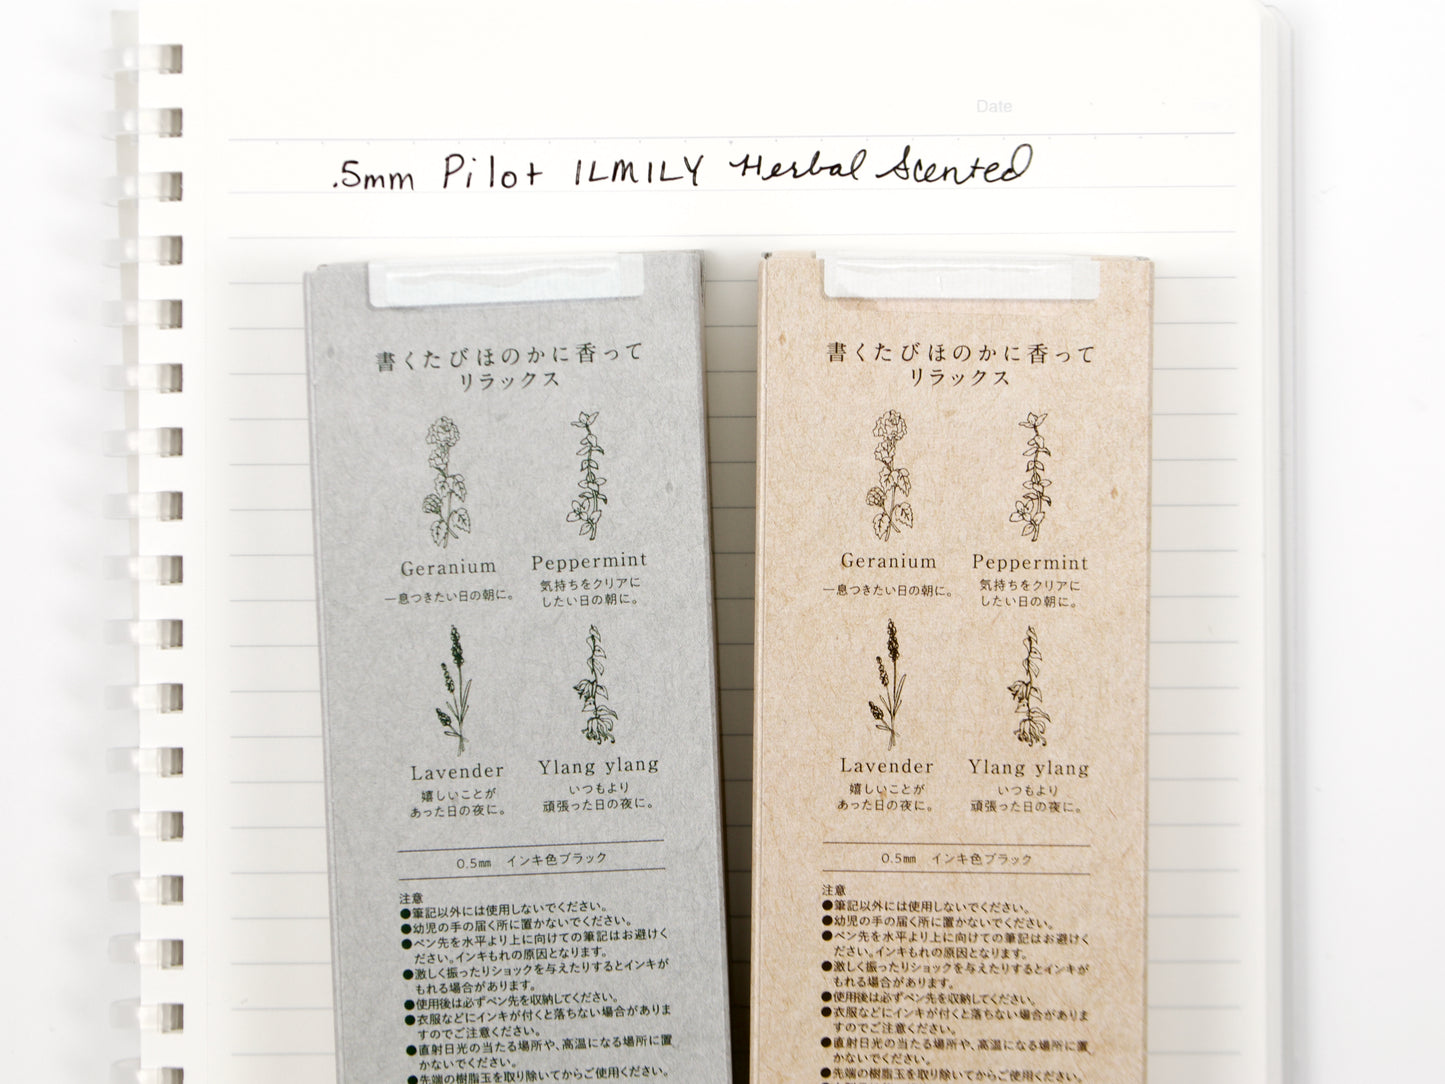 Date
.5mm Pilot ILMILY Herbal Scented
書くたびほのかに香って
リラックス
Geranium
一息つきたい日の朝に。
Peppermint
気持ちをクリアに
したい日の朝に。
Lavender
嬉しいことが
あった日の夜に。
Ylang ylang
いつもより
頑張った日の夜に。
0.5mm インキ色ブラック
注意
●筆記以外には使用しないでください。
●幼児の手の届く所に置かないでください。
●ペン先を水平より上に向けての筆記はお避けく
ださい。インキもれの原因となります。
●激しく振ったりショックを与えたりするとインキが
もれる場合があります。
●使用後は必ずペン先を収納してください。
●衣服などにインキが付くと落ちない場合がありま
すのでご注意ください。
●直射日光の当たる場所や、高温になる場所に置
かないでください。
●先端の樹脂玉を取り除いてからご使用ください。
書くたびほのかに香って
リラックス
Geranium
一息つきたい日の朝に。
Peppermint
気持ちをクリアに
したい日の朝に。
Lavender
嬉しいことが
あった日の夜に。
Ylang ylang
いつもより
頑張った日の夜に。
0.5mm インキ色ブラック
注意
●筆記以外には使用しないでください。
●幼児の手の届く所に置かないでください。
●ペン先を水平より上に向けての筆記はお避けく
ださい。インキもれの原因となります。
●激しく振ったりショックを与えたりするとインキが
もれる場合があります。
●使用後は必ずペン先を収納してください。
●衣服などにインキが付くと落ちない場合がありま
すのでご注意ください。
●直射日光の当たる場所や、高温になる場所に置
かないでください。
●先端の樹脂玉を取り除いてからご使用ください。